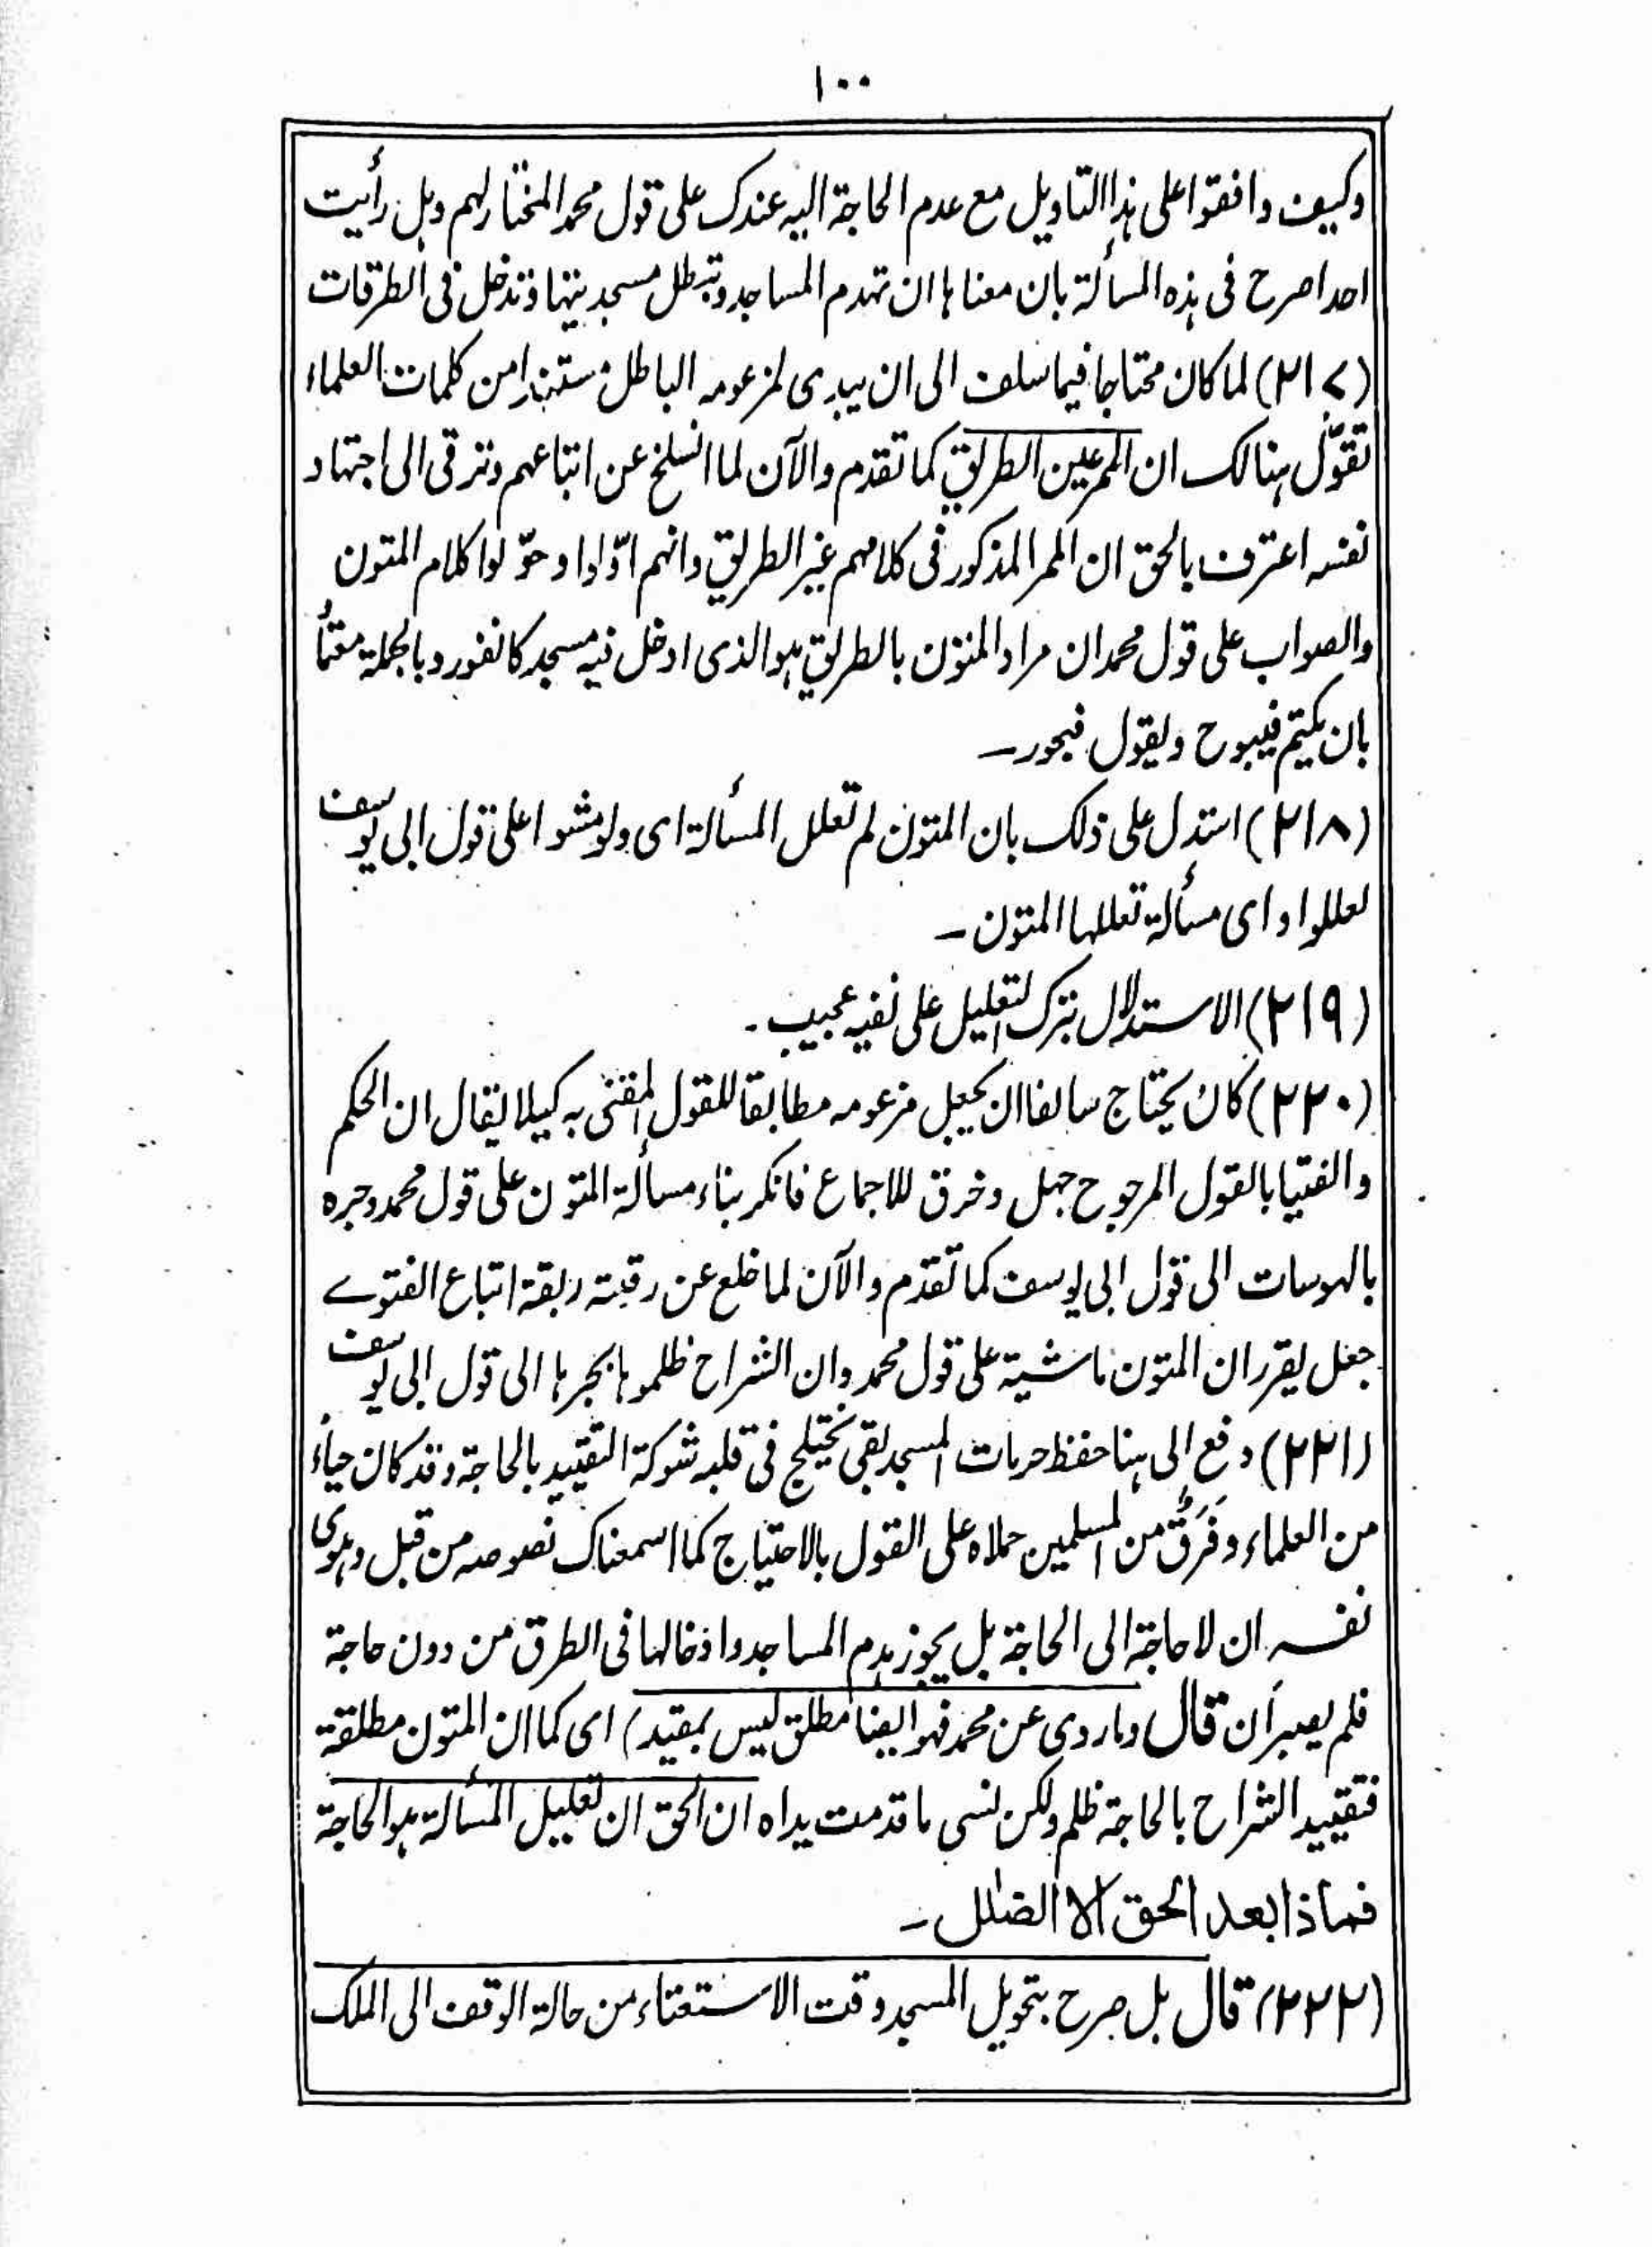 ١٠٠
وكيف وافقوا على هذا التاويل مع عدم الحاجة اليه عندك على قول محمد المختار لهم وهل رأيت
احدا صرح فى هذه المسألة بان معناها ان تهدم المساجد وتبطل مسجديتها وتدخل فى الطرقات
(٢١٧) لما كان محتاجا فيما سلف الى ان يبدى لمزعومه الباطل مستندا من كلمات العلماء
تقوّل هنالك ان الممر عين الطريق كما تقدم والآن لما انسلخ عن اتباعهم وترقى الى اجتهاد
نفسه اعترف بالحق ان الممر المذكور فى كلامهم غير الطريق وانهم اوّلوا وحوّلوا كلام المتون
والصواب على قول محمد ان مراد المتون بالطريق هو الذى ادخل فيه مسجد كانفور وبالجملة
بان يكتم فيبوح ويقول فيجور۔
(٢١٨) استدل على ذلك بان المتون لم تعلل المسألة اى ولو مشوا على قول ابى يوسف
لعللوا واى مسألة تعللها المتون۔
(٢١٩) الاستدلال بترك التعليل على نفيه عجيب۔
(٢٢٠) كان يحتاج سالفا ان يجعل مزعومه مطابقا للقول المفتى به كيلا يقال ان الحكم
والفتيا بالقول المرجوح جهل وخرق للاجماع فانكر بناء مسألة المتون على قول محمد وجره
بالهوسات الى قول ابى يوسف كما تقدم والآن لما خلع عن رقبته ربقة اتباع الفتوے
جعل يقرر ان المتون ماشية على قول محمد وان الشراح ظلموها بجرها الى قول ابى يوسف
(٢٢١) دفع الى هنا حفظ حرمات المسجد بقى تختلج فى قلبه شوكة التقييد بالحاجة وقد كان حياءٌ
من العلماء وفَرَقٌ من المسلمين حملاه على القول بالاحتياج كما اسمعناك نصوصه من قبل وهوى
نفسه ان لا حاجة الى الحاجة بل يجوز هدم المساجد وادخالها فى الطرق من دون حاجة
فلم يصبر ان قال وما روى عن محمد فهو ايضا مطلق ليس بمقيد) اى كما ان المتون مطلقة
فتقييد الشراح بالحاجة ظلم ولكن نسى ما قدمت يداه ان الحق ان تعليل المسألة هو الحاجة
فماذا بعد الحق الا الضلل۔
(٢٢٢) قال بل صرح بتحويل المسجد وقت الاستغناء من حالة الوقف الى الملك